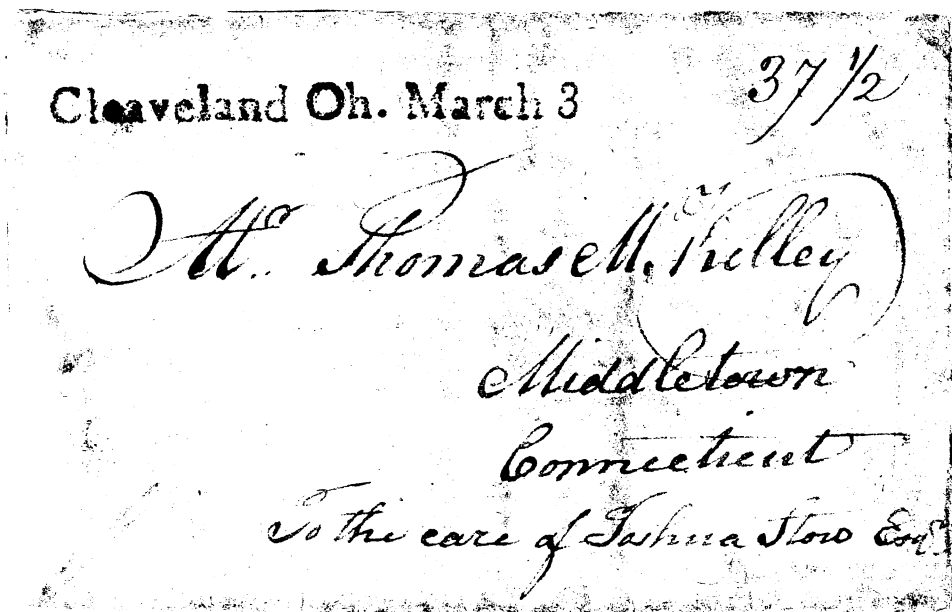 Cleaveland Oh. March 3
37 1/2
Mr. Thomas M. Kelley
Middletown
Connecticut
To the care of Joshua Stow Esqr.